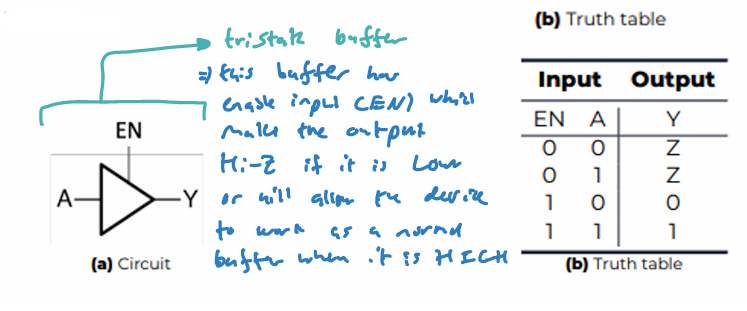 (b) Truth table
tristate buffer
=) this buffer has
enable input (EN) which
makes the output
Hi-Z if it is Low
or will allow the device
to work as a normal
buffer when it is HIGH
EN
A
Y
(a) Circuit
Input Output
EN A Y
0 0 Z
0 1 Z
1 0 0
1 1 1
(b) Truth table